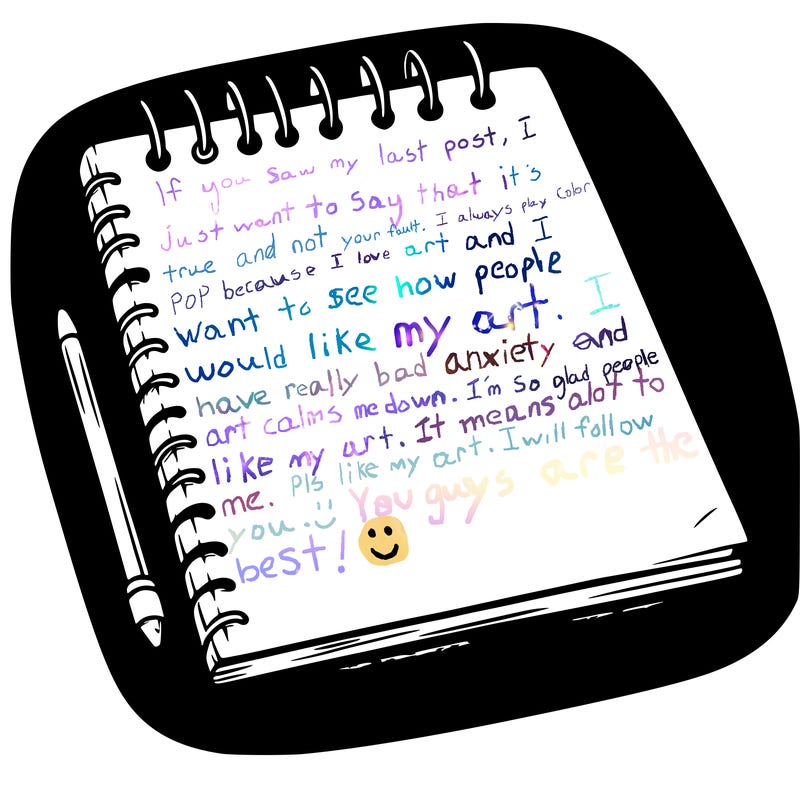 If you saw my last post, I
just want to say that it's
true and not your fault. I always play Color
POP because I love art and I
want to see how people
would like my art. I
have really bad anxiety and
art calms me down. I'm so glad people
like my art. It means alot to
me. Pls like my art. I will follow
you. :) You guys are the
best!